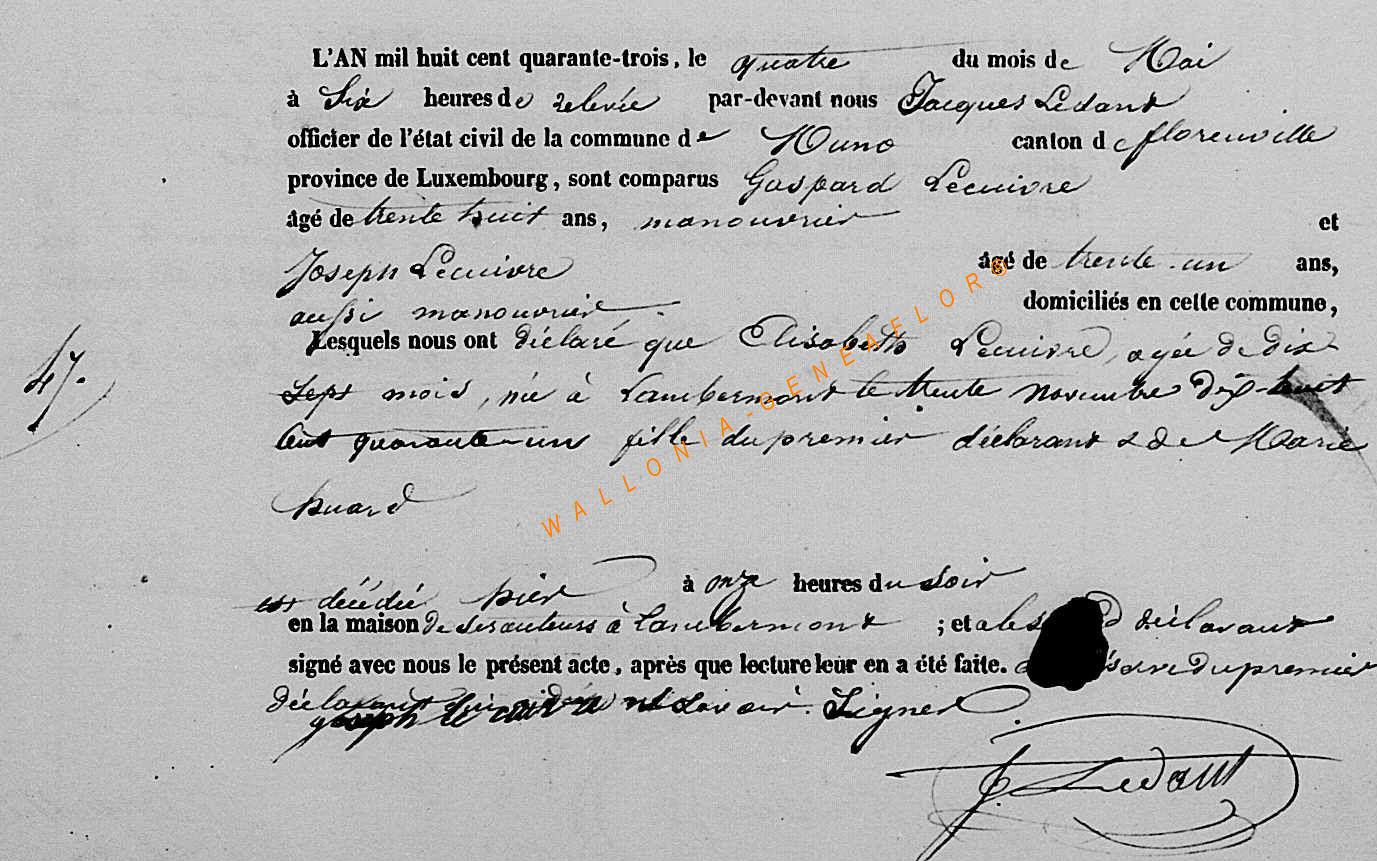 L'AN mil huit cent quarante-trois, le quatre du mois de Mai
à Six heures de relevée par-devant nous Jacques Ledant
officier de l'état civil de la commune de Muno canton de florenville
province de Luxembourg, sont comparus Gaspard Lecuivre
âgé de trente huit ans, manouvrier et
Joseph Lecuivre âgé de trente-un ans,
aussi manouvrier domiciliés en cette commune,
47.
Lesquels nous ont déclaré que Elisabeth Lecuivre, agée de dix
Sept mois, née à Lambermont le trente Novembre dix-huit
Cent quarante-un fille du premier déclarant & de Marie
huard
est décédée hier à onze heures du Soir
en la maison de ses auteurs à Lambermont ; et a le déclarant
signé avec nous le présent acte, après que lecture leur en a été faite. du premier
Déclarant qui savoir Signer
joseph le
J. Ledant
WALLONIA-GENEAFLORE